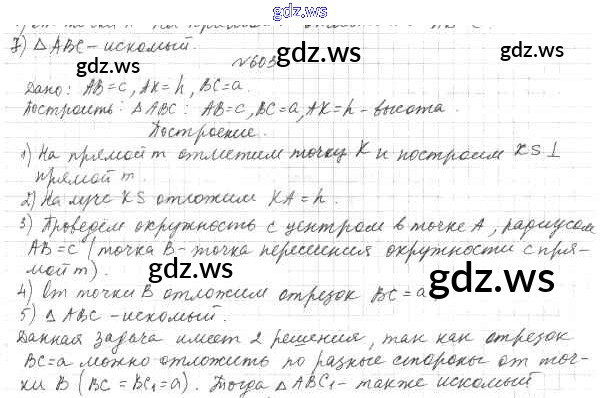 gdz.ws
7) △ABC - искомый.
№603
Дано: AB=c, AK=h, BC=a.
Построить: △ABC: AB=c, BC=a, AK=h - высота.
Построение.
1) На прямой m отметим точку K и построим KS ⊥
прямой m.
2) На луче KS отложим KA=h.
3) Проведем окружность с центром в точке A, радиусом
AB=c (точка B - точка пересечения окружности с пря-
мой m).
4) От точки B отложим отрезок BC=a.
5) △ABC - искомый.
Данная задача имеет 2 решения, так как отрезок
BC=a можно отложить по разные стороны от точ-
ки B (BC = BC₁ = a). Тогда △ABC₁ - также искомый
gdz.ws
gdz.ws
gdz.ws
gdz.ws
gdz.ws
gdz.ws
gdz.ws
gdz.ws